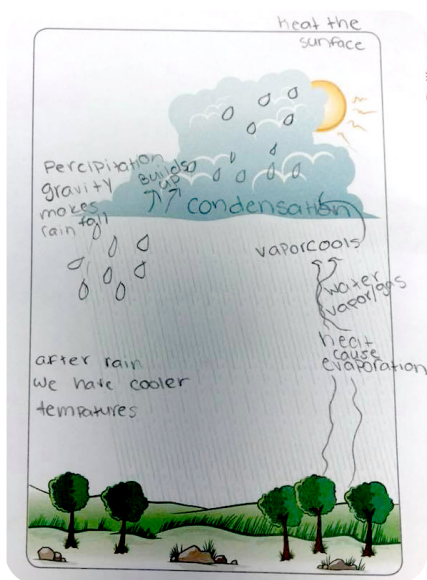 heat the
surface
Percipitation
gravity
makes
rain fall
Builds
up
condensation
vaporcools
water
vapor/gas
heat
cause
evaporation
after rain
we have cooler
tempatures